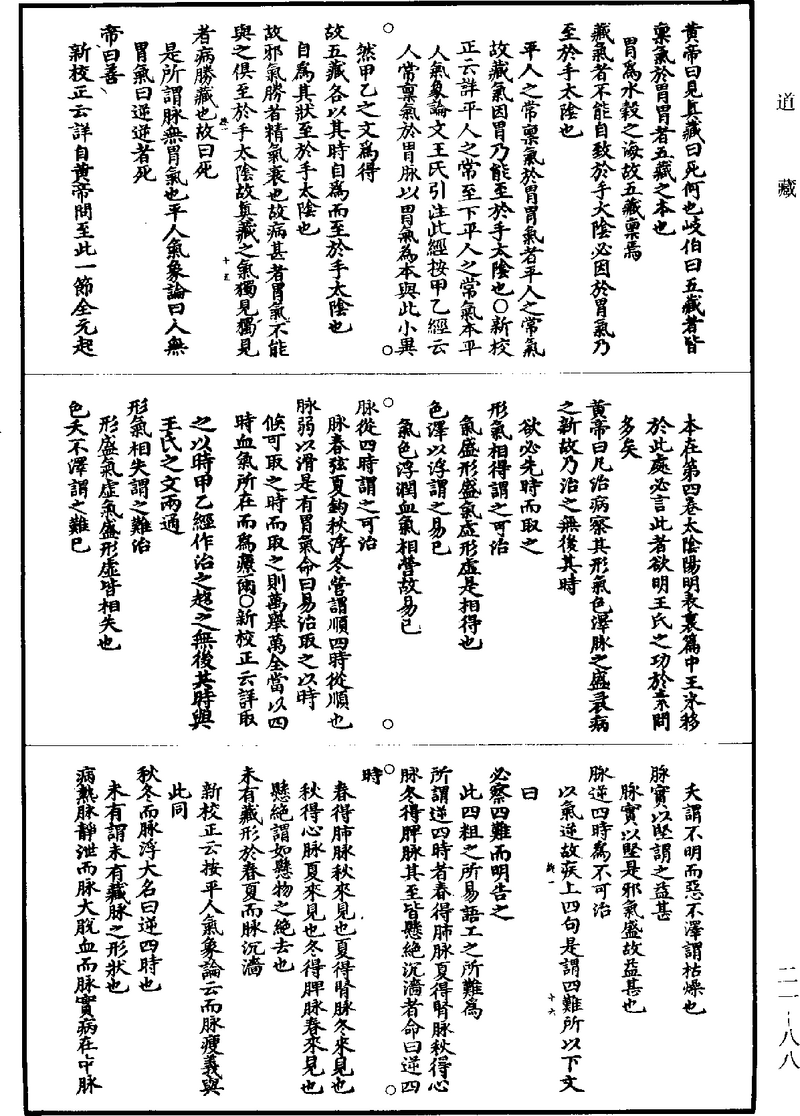 道藏
黃帝曰見真藏曰死何也岐伯曰五藏者皆
稟氣於胃胃者五藏之本也
胃為水穀之海故五藏稟焉
藏氣者不能自致於手太陰必因於胃氣乃
至於手太陰也
平人之常稟氣於胃胃氣者平人之常氣
故藏氣因胃乃能至於手太陰也○新校
正云詳平人之常至下平人之常氣本平
人氣象論文王氏引注此經按甲乙經云
人常稟氣於胃脉以胃氣為本與此小異
然甲乙之文為得
故五藏各以其時自為而至於手太陰也
自為其狀至於手太陰也
故邪氣勝者精氣衰也故病甚者胃氣不能
與之俱至於手太陰故真藏之氣獨見獨見
者病勝藏也故曰死
是所謂脉無胃氣也平人氣象論曰人無
胃氣曰逆逆者死
帝曰善
新校正云詳自黃帝問至此一節全元起
十五
本在第四卷太陰陽明表裏篇中王冰移
於此處必言此者欲明王氏之功於素問
多矣
黃帝曰凡治病察其形氣色澤脉之盛衰病
之新故乃治之無後其時
欲必先時而取之
形氣相得謂之可治
氣盛形盛氣虛形虛是相得也
色澤以浮謂之易已
氣色浮潤血氣相營故易已
脉從四時謂之可治
脉春弦夏鈎秋浮冬營謂順四時從順也
脉弱以滑是有胃氣命曰易治取之以時
候可取之時而取之則萬舉萬全當以四
時血氣所在而為療爾○新校正云詳取
之以時甲乙經作治之趨之無後其時與
王氏之文兩通
形氣相失謂之難治
形盛氣虛氣盛形虛皆相失也
色夭不澤謂之難已
夭謂不明而惡不澤謂枯燥也
脉實以堅謂之益甚
脉實以堅是邪氣盛故益甚也
脉逆四時為不可治
以氣逆故疾上四句是謂四難所以下文
曰
必察四難而明告之
此四粗之所易語工之所難為
所謂逆四時者春得肺脉夏得腎脉秋得心
脉冬得脾脉其至皆懸絕沉濇者命曰逆四
時
春得肺脉秋來見也夏得腎脉冬來見也
秋得心脉夏來見也冬得脾脉春來見也
懸絕謂如懸物之絕去也
未有藏形於春夏而脉沉濇
新校正云按平人氣象論云而脉瘦義與
此同
秋冬而脉浮大名曰逆四時也
未有謂未有藏脉之形狀也
病熱脉靜泄而脉大脫血而脉實病在中脉
十六
二一-八八